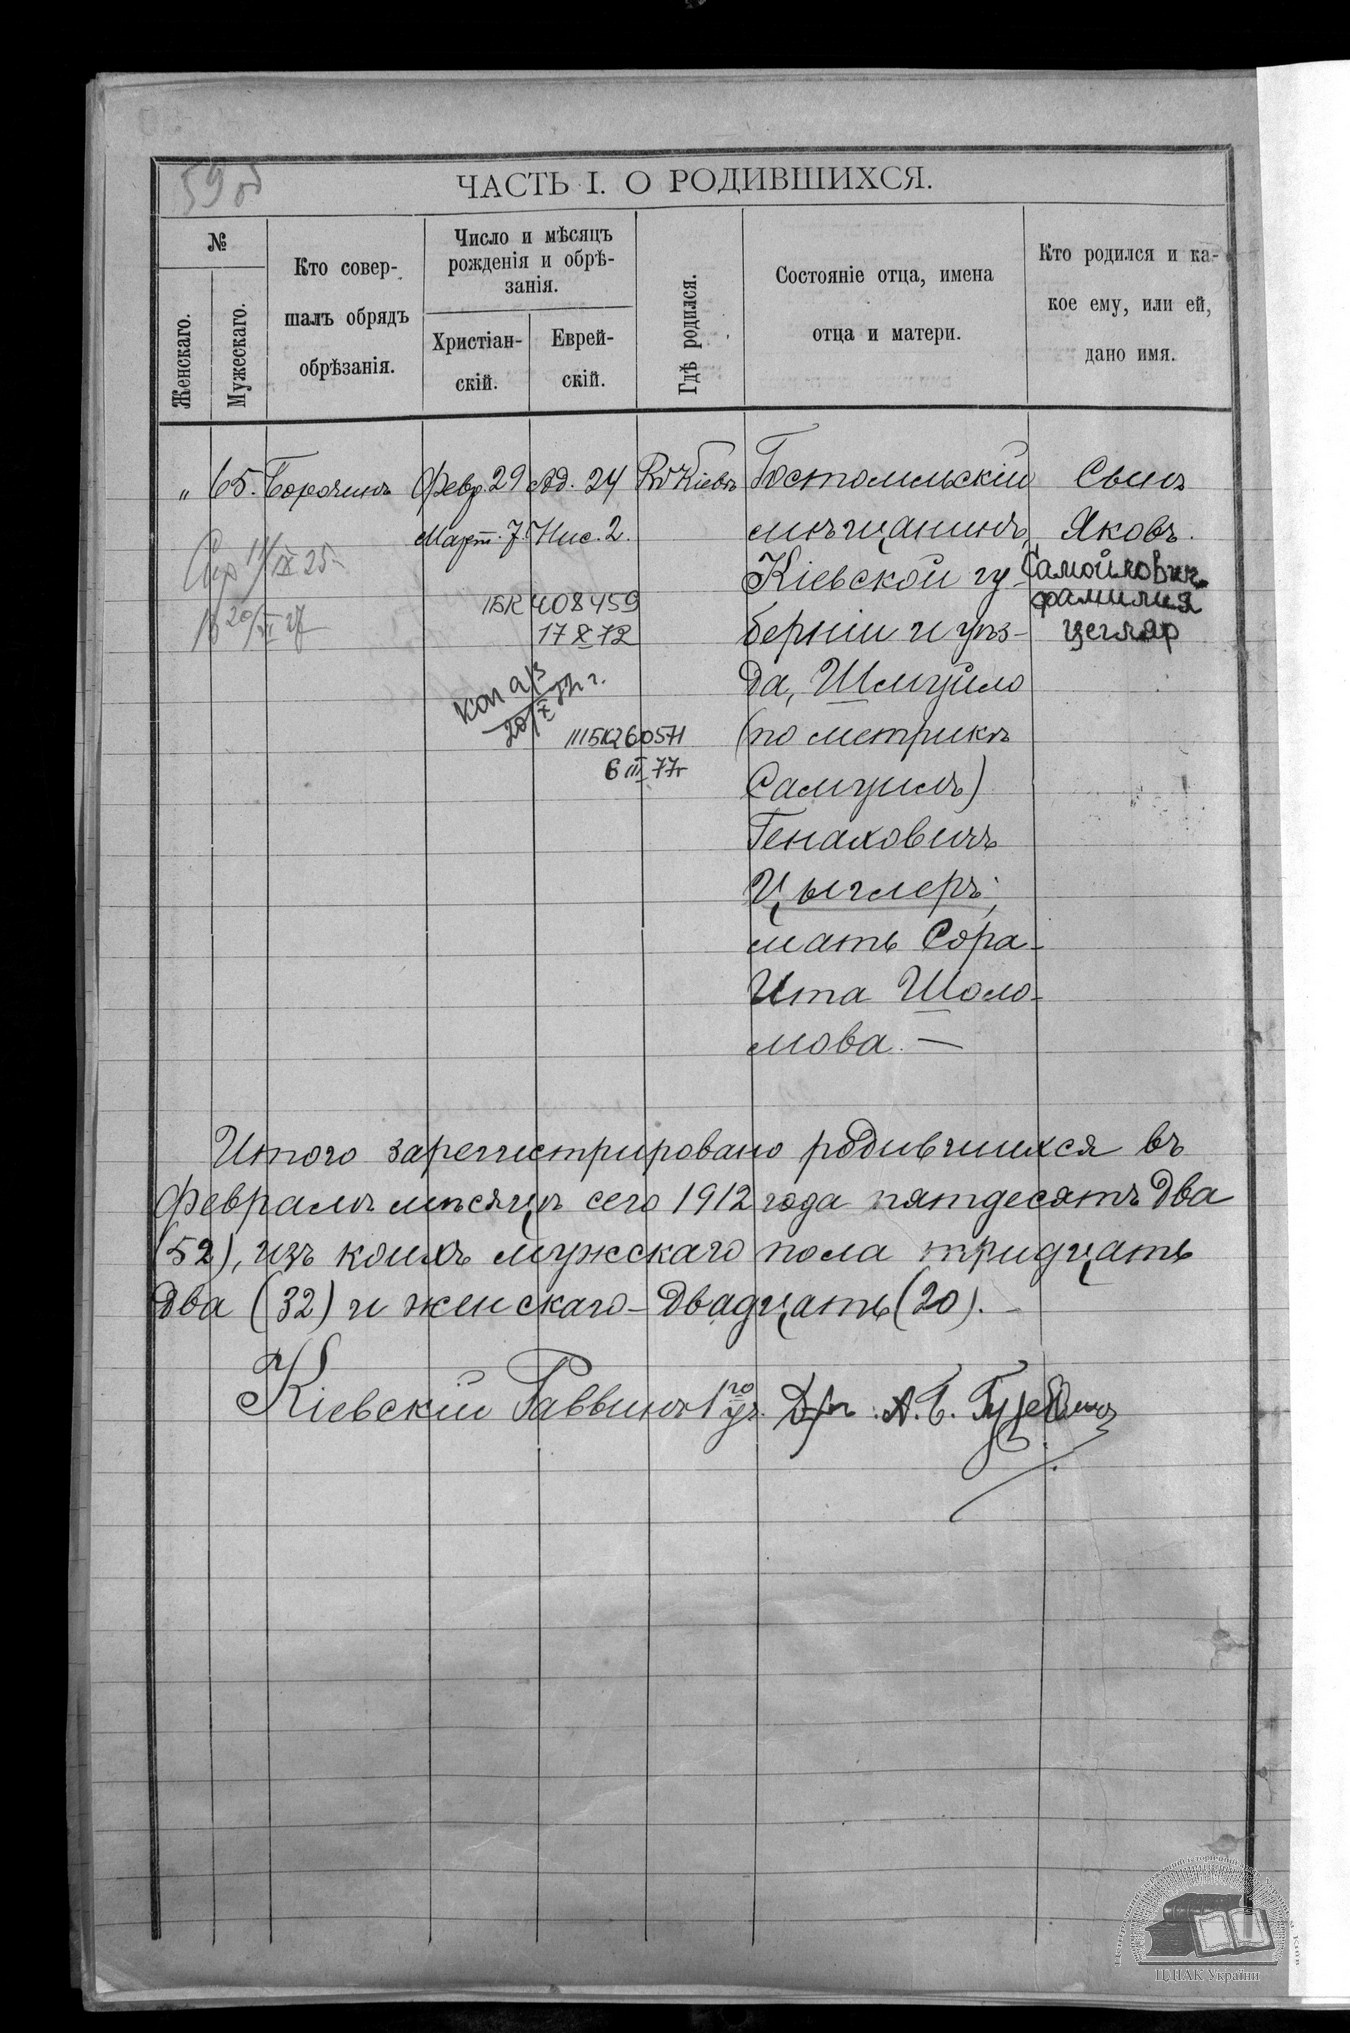 59 об
ЧАСТЬ I. О РОДИВШИХСЯ.
№
Женскаго.
Мужескаго.
Кто совер-
шалъ обрядъ
обрѣзанія.
Число и мѣсяцъ
рожденія и обрѣ-
занія.
Христіан-
скій.
Еврей-
скій.
Гдѣ родился.
Состояніе отца, имена
отца и матери.
Кто родился и ка-
кое ему, или ей,
дано имя.
" 65. Февр. 29 Ад. 24 Въ Кіевѣ
Март. 7. Нис. 2.
Гостомельскій
мѣщанинъ,
Кіевской гу-
берніи и уѣз-
да, Шмуйло
(по метрикѣ
Самуилъ)
Генаховичъ
Цыглеръ;
мать Сора-
Ита Шоло-
мова. —
Сынъ
Яковъ.
Самойлович
фамилия
Цегляр
11/IX 25
20/ 27
ІБК 408459
17 X 72
коп а/з
20/X 72 г.
ІІІБК 260571
6 III 77г
Итого зарегистрировано родившихся въ
Февралѣ мѣсяцѣ сего 1912 года пятдесятъ два
(52), изъ коихъ мужскаго пола тридцать
два (32) и женскаго - двадцать (20). —
Кіевскій Раввинъ 1го уч. Д-ръ А. Б. Гуревичъ
ЦДІАК України